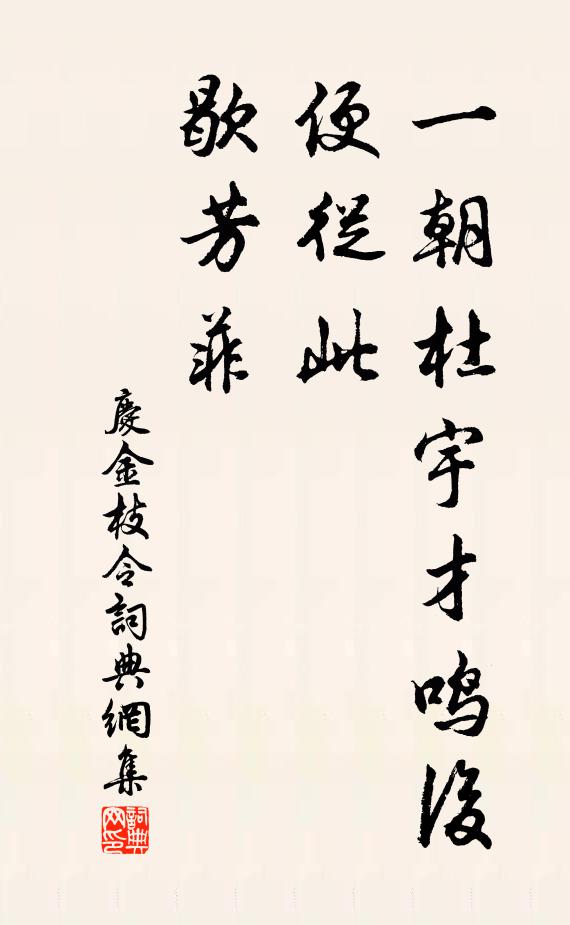 一朝杜宇才鸣後
便從此
歇芳菲
慶金枝令詞典網集
詞典网印